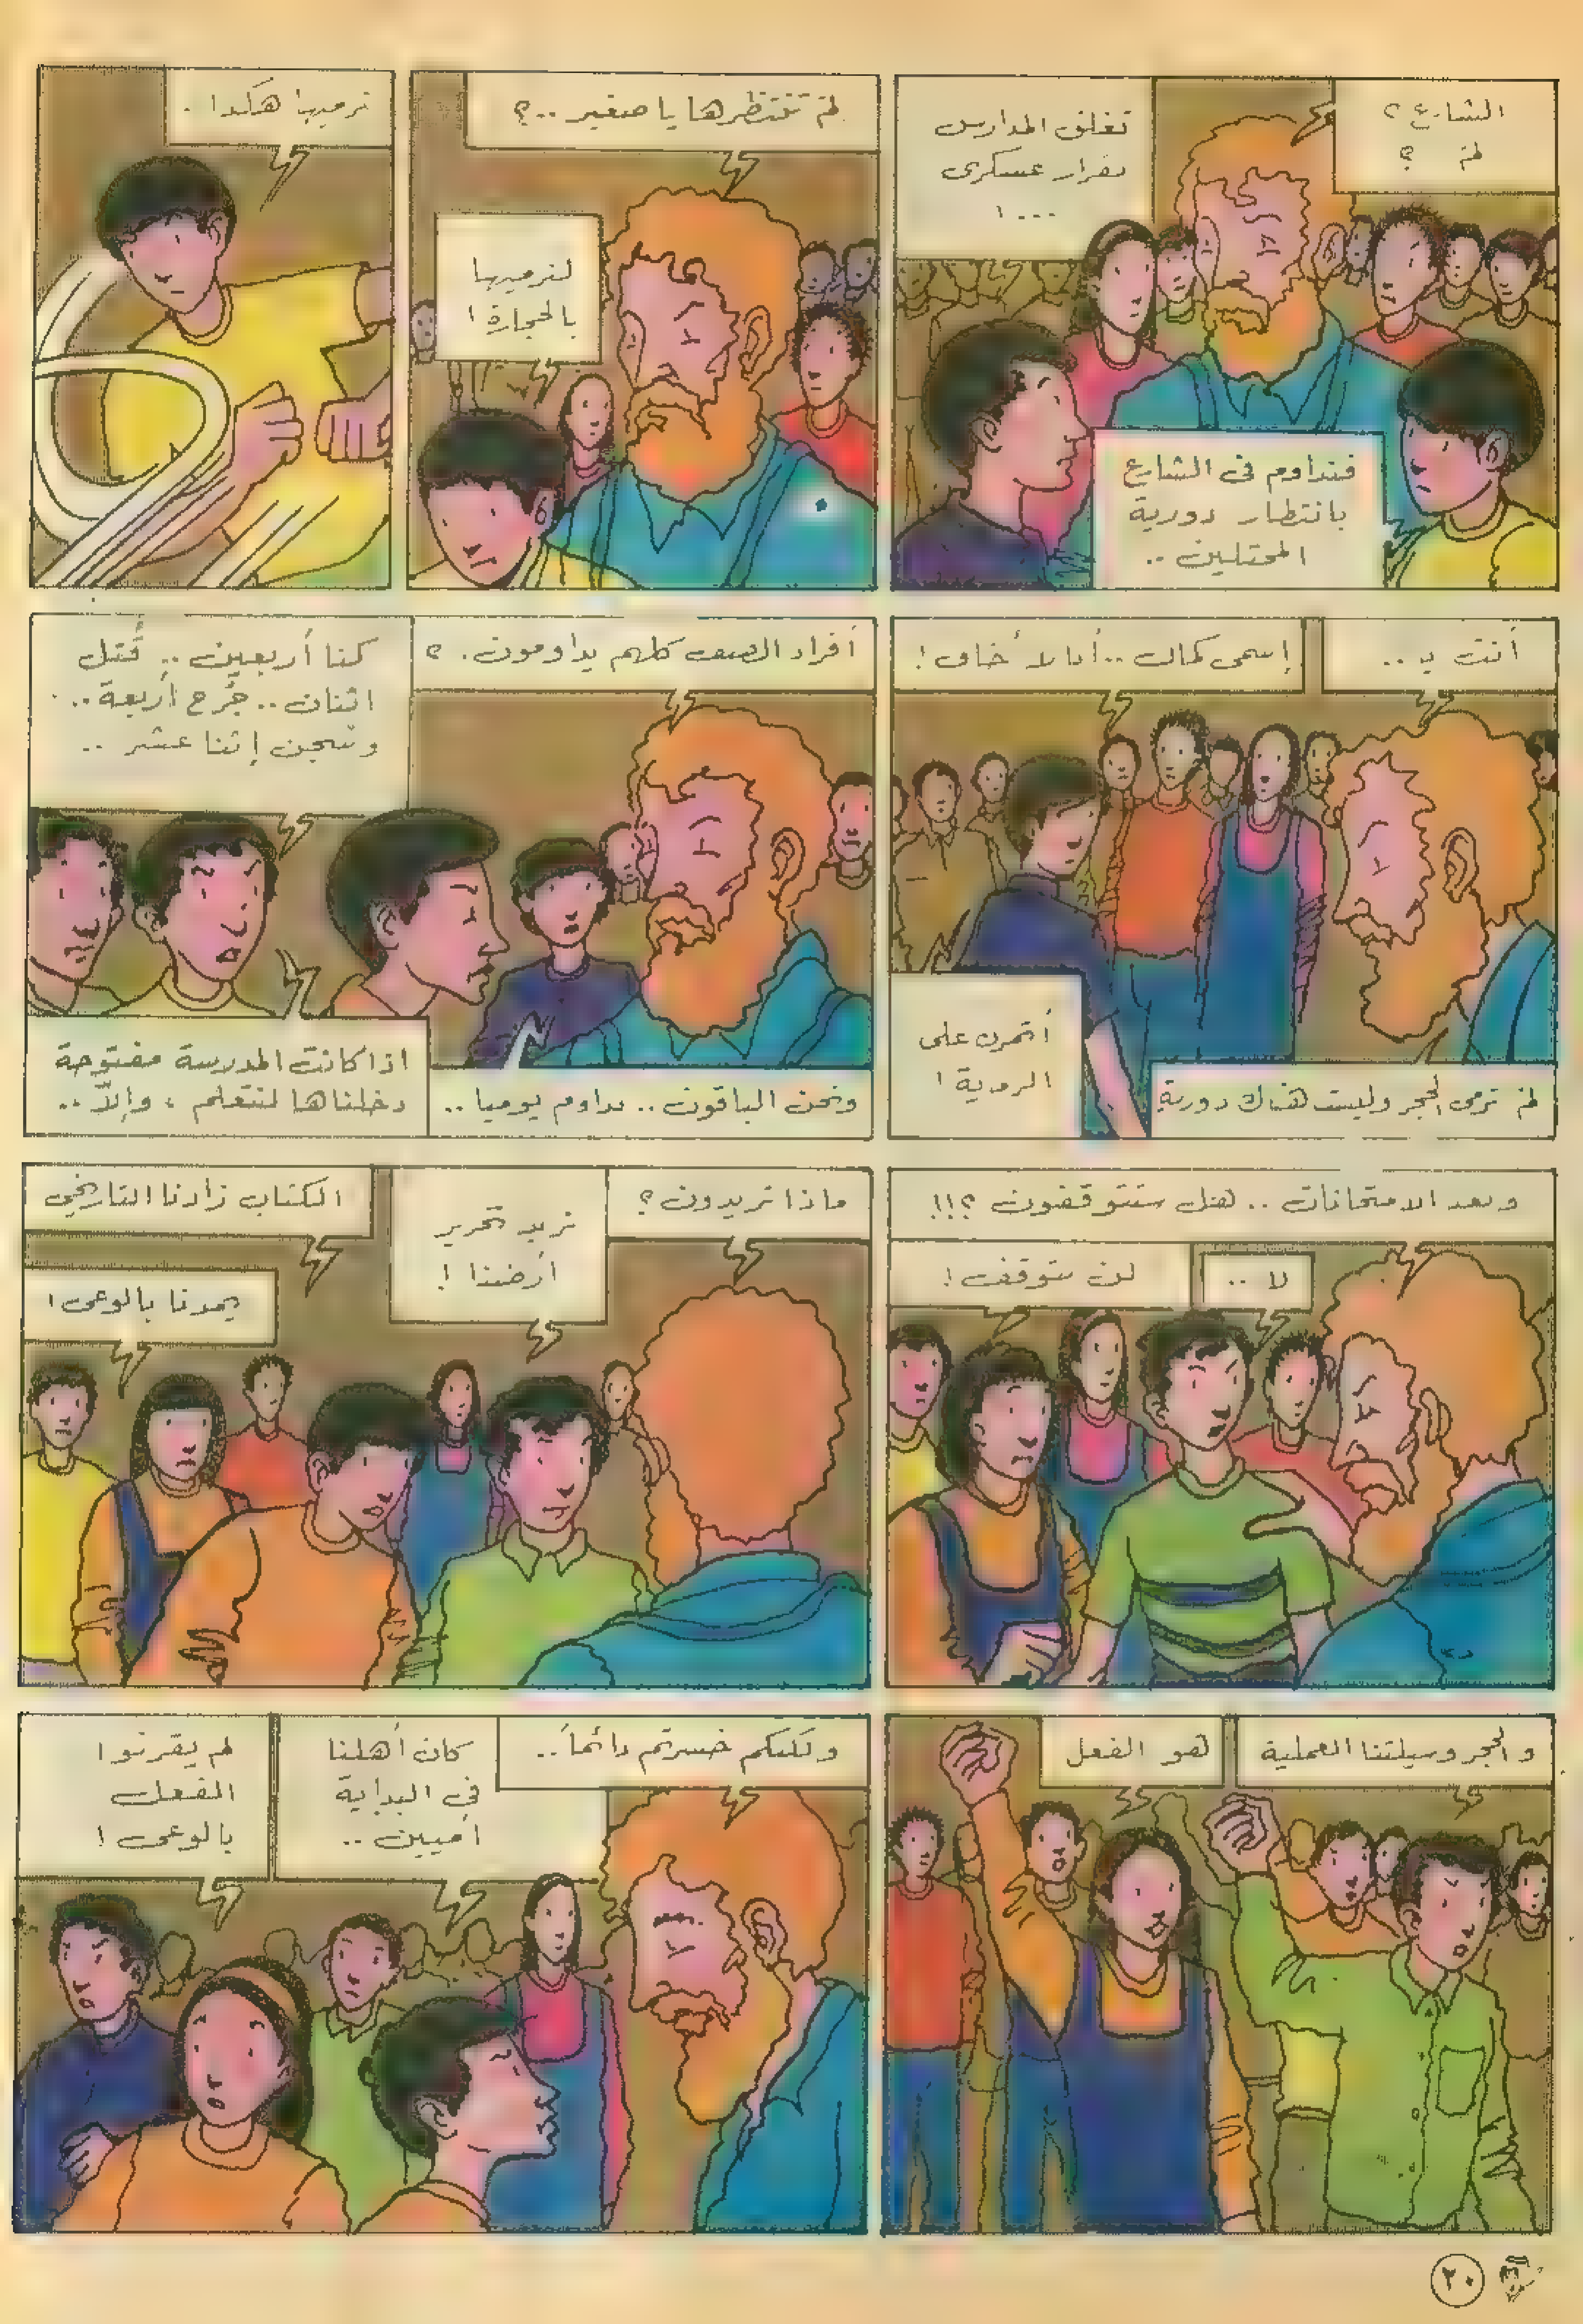 الشارع؟
لمَ ؟
تغلق المدارس
بقرار عسكرى
...!
فنداوم فى الشارع
بانتظار دورية
المحتلين ..
لمَ تنتظرها يا صغير ..؟
لنرميها
بالحجارة!
نرميها هكذا .
أنت يـ ..
إسمى كمال .. أنا لا أخاف !
لمَ ترمى الحجر وليست هناك دورية
أتمرن على
الرماية !
أفراد الصف كلهم يداومون . ؟
كنا أربعين .. قُتل
اثنان .. جُرح أربعة ..
وسجن إثنا عشر ..
ونحن الباقون .. نداوم يوميا ..
اذا كانت المدرسة مفتوحة
دخلناها لنتعلم ، وإلاّ ..
وبعد الامتحانات .. هل ستتوقفون ؟!!
لا ..
لن نتوقف !
ماذا تريدون ؟
نريد تحرير
أرضنا !
الكتاب زادنا التاريخي
يمدنا بالوعى !
والحجر وسيلتنا العملية
هو الفعل
ولكنكم خسرتم دائماً ..
كان أهلنا
فى البداية
أميين ..
لم يقرنوا
الفعل
بالوعى !
٢٠